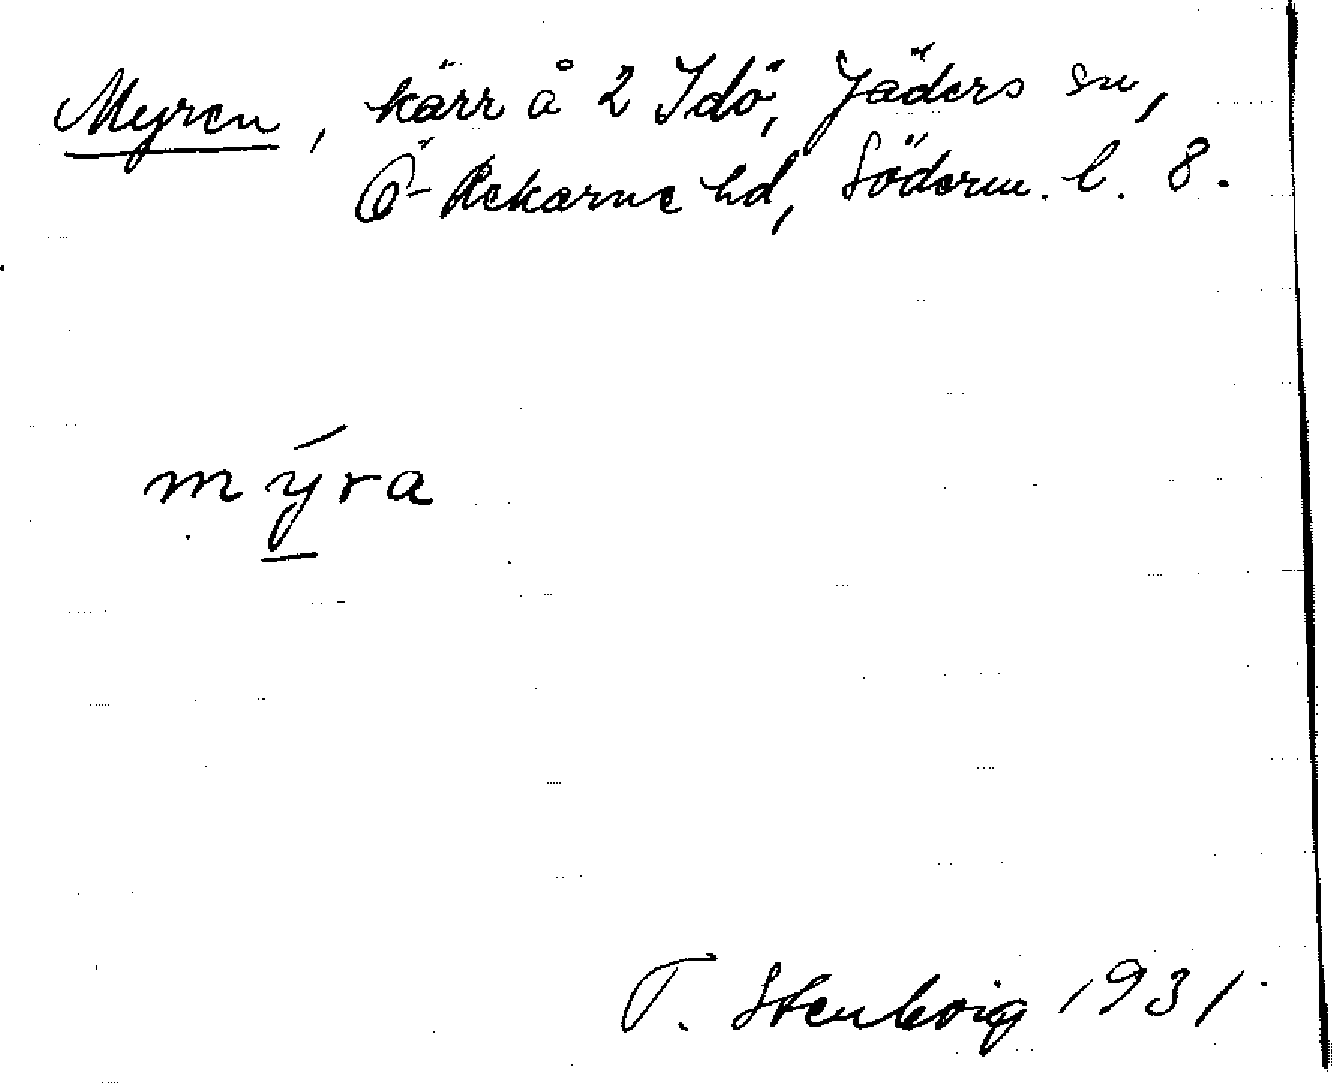 Myren, kärr å 2 Idö, Jäders sn,
Ö-Rekarne hd, Söderm. l. 8.
mýra
T. Stenberg 1931.